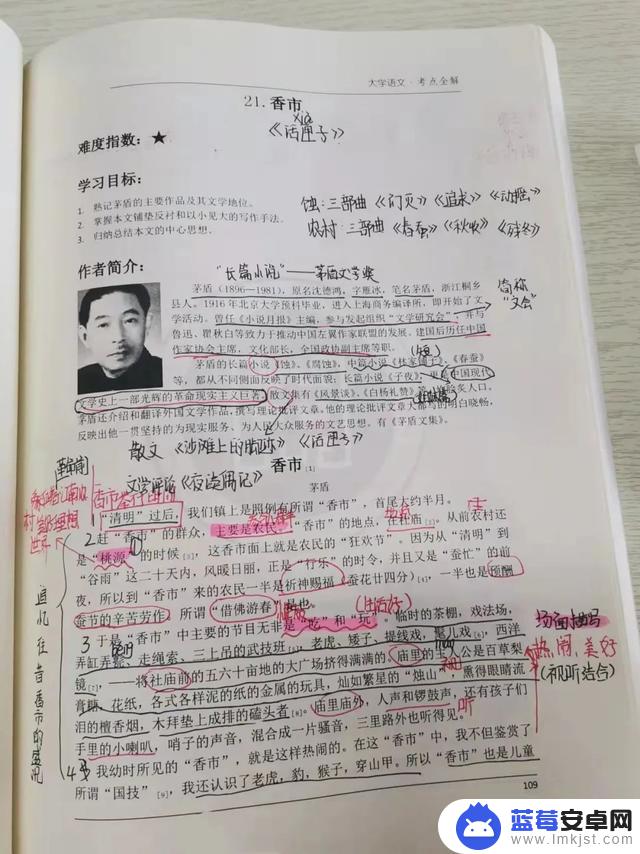 大学语文·考点全解
21.香市
xiá
《话匣子》
难度指数：★
学习目标：
1. 熟记茅盾的主要作品及其文学地位。
2. 掌握本文铺垫反衬和以小见大的写作手法。
3. 归纳总结本文的中心思想。
蚀：三部曲《幻灭》《追求》《动摇》
农村：三部曲《春蚕》《秋收》《残冬》
作者简介：
"长篇小说"——茅盾文学奖
茅盾（1896—1981），原名沈德鸿，字雁冰，笔名茅盾，浙江桐乡
县人。1916年北京大学预科毕业，进入上海商务编译所，即开始了文
学活动。曾任《小说月报》主编，参与发起组织"文学研究会"，并与
鲁迅、瞿秋白等致力于推动中国左翼作家联盟的发展。建国后历任中国
作家协会主席，文化部长，全国政协副主席等职。
简称
"文会"
茅盾的长篇小说《蚀》、《腐蚀》，中篇小说《林家铺子》、《春蚕》
(短)
等，都从不同侧面反映了时代面貌；长篇小说《子夜》，更是中国现代
文学史上一部光辉的革命现实主义巨著；散文集有《风景谈》、《白杨礼赞》等，脍炙人口。
茅盾还介绍和翻译外国文学作品，撰写理论批评文章。他的理论批评文章大都写的明白晓畅，
反映出他一贯坚持的为现实服务、为人民大众服务的文艺思想。有《茅盾文集》。
散文《沙滩上的脚迹》《话匣子》
文学评论《夜读偶记》
香市 [1]
茅盾
"清明"过后，我们镇上照例有所谓"香市"，首尾大约半月。
赶"香市"的群众，主要是农民。"香市"的地点，在社庙。从前农村还
是"桃源"的时候[3]，这香市面上就是农民的"狂欢节"。因为从"清明"到
"谷雨"这二十天内，风暖日丽，正是"行乐"的时令，并且又是"蚕忙"的前
夜，所以到"香市"来的农民一半是祈神赐福（蚕花廿四分）[4]，一半也是预酬
蚕节的辛苦劳作。所谓"借佛游春"是也。
(生活好)
于是"香市"中主要的节目无非是"吃"和"玩"。临时的茶棚，戏法场，
弄缸弄甏，走绳索，三上吊的武技班，老虎，矮子，提线戏，髦儿戏[6]，西洋
镜[7]，——将社庙前的五六十亩地的大广场挤得满满的。庙里的主人公是百草梨
膏糖，花纸，各式各样泥的纸的金属的玩具，灿如繁星的"烛山"，熏得眼睛流
泪的檀香烟，木拜垫上成排的磕头者[8]。庙里庙外，人声和锣鼓声，还有孩子们
听
手里的小喇叭，哨子的声音，混合成一片骚音，三里路外也听得见。
我幼时所见的"香市"，就是这样热闹的。在这"香市"中，我不但鉴赏了
所谓"国技"[9]，我还认识了老虎，豹，猴子，穿山甲。所以"香市"也是儿童
场面描写
热闹，美好
(视听结合)
追忆往昔香市的盛况
109
蓝莓安卓网
www.lmkjst.com